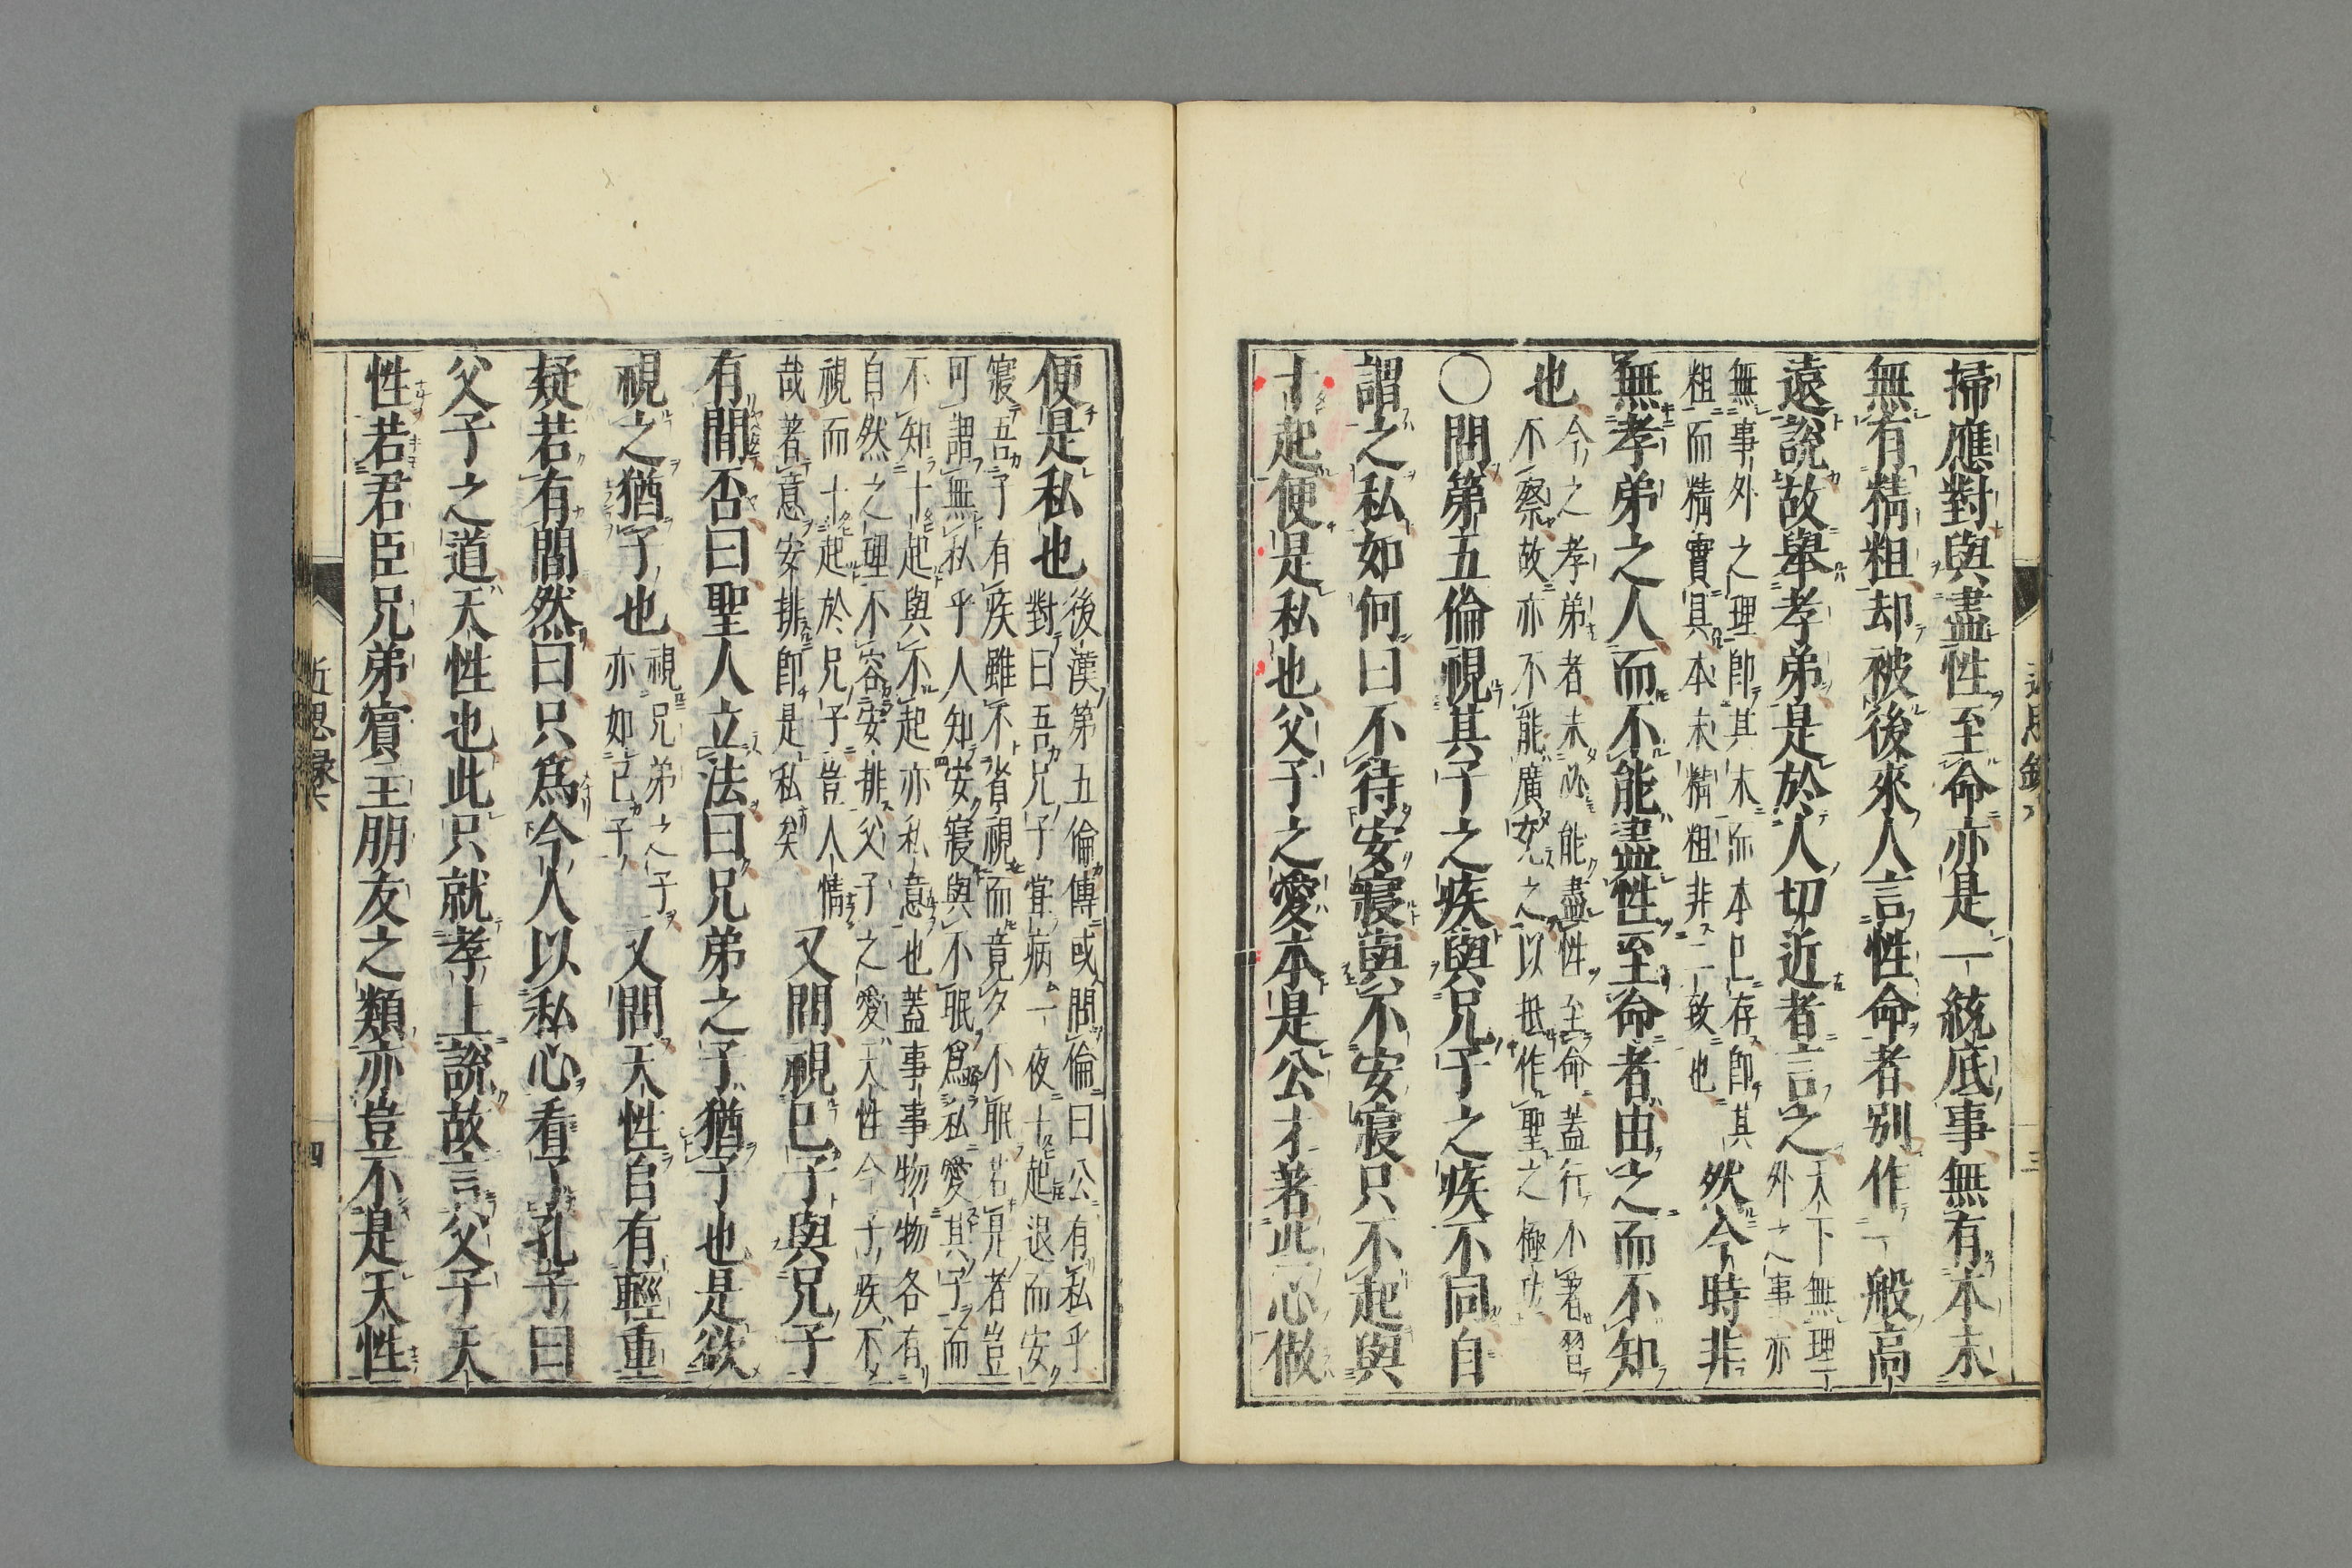 掃應對與盡性至命亦是一統底事無有本末
無有精粗却被後來人言性命者別作一般高
遠說故舉孝弟是於人切近者言之天下無理
外之事亦
無事外之理即其末而本已存即其
粗而精實具本末精粗非二致也
然今時非
無孝弟之人而不能盡性至命者由之而不知
也
今之孝弟者未必能盡性至命蓋行不著習
不察故亦不能廣充之以抵作聖之極功
〇問第五倫視其子之疾與兄子之疾不同自
謂之私如何曰不待安寢與不安寢只不起與
十起便是私也父子之愛本是公才著些心做
近思錄
三
便是私也
後漢第五倫傳或問倫曰公有私乎
對曰吾兄子甞病一夜十起退而安
寢吾子有疾雖不省視而竟夕不眠若是者豈
可謂無私乎人知安寢與不眠爲私愛其子而
不知十起與不起亦私意也蓋事事物物各有
自然之理不容安排父子之愛天性今子疾不
視而十起於兄子豈人情
哉著意安排即是私矣
又問視已子與兄子
有間否曰聖人立法曰兄弟之子猶子也是欲
視之猶子也
視兄弟之子
亦如已子
又問天性自有輕重
疑若有間然曰只爲今人以私心看了孔子曰
父子之道天性也此只就孝上說故言父子天
性若君臣兄弟賓主朋友之類亦豈不是天性
近思錄六
四